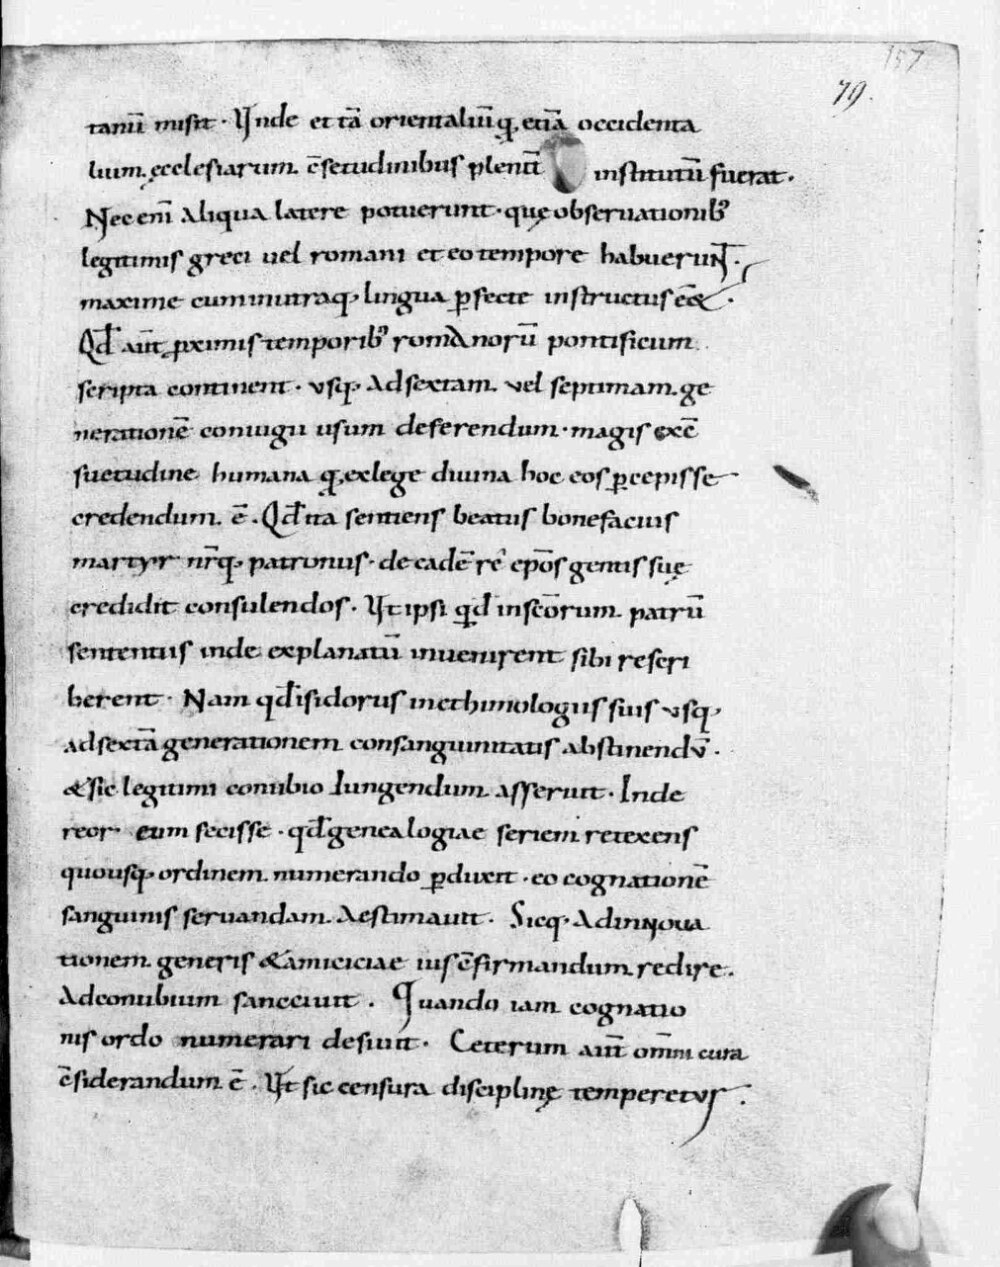 157
79.
tanū misit · Vnde et tā orientaliūq, etiā occidenta
lium ęcclesiarum c̄setudinibus plenit̄ institutū fuerat ·
Nec eni̅ aliqua latere potuerunt · quę obseruationibꝰ
legitimis greci uel romani et eo tempore habueruɴ̄t ·
maxime cum inutraq; lingua ꝑfecte instructus eēt ·
Qd̄ aut̄ ꝓximis temporibꝰ romanorū pontificum
scripta continent · vsq; ad sextam vel septimam ge
nerationē coniugii usum deferendum · magis exc̄
suetudine humana q, ex lege diuina hoc eos p̄cepisse
credendum ē . Qd̄ ita sentiens beatus bonefacius
martyr nr̄q; patronus · de eadē rē ep̄os gentis suę
credidit consulendos · Vt ipsi qd̄ in sc̄orum patrū
sententiis inde explanatū inuenirent sibi rescri
berent · Nam qd̄ isidorus in ethimologiis suis vsq;
ad sextā generationem consanguinitatis abstinendū ·
& sic legitimi conubio iungendum asserunt · Inde
reor eum fecisse · qd̄ genealogiae seriem retexens
quousq; ordinem numerando ꝑduxit · eo cognationē
sanguinis seruandam aestimauit · Sicq; ad innoua
tionem generis & amiciciae ius c̄firmandum redire ·
ad conubium sancciuit . Quando iam cognatio
nis ordo numerari desiuit · Ceterum aut̄ om̄i cura
c̄siderandum ē . Vt sic censura disciplinę temperetur .